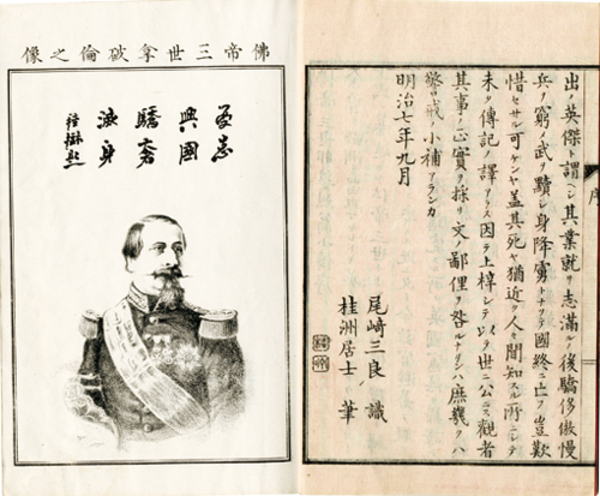 序
出ノ英傑ト謂ヘシ其業就リ志滿ルノ後驕侈傲慢
兵ヲ窮メ武ヲ黷シ身降虜トナリテ國終ニ亡フ豈歎
惜セサル可ケンヤ盖其死ヤ猶近ク人々聞知スル所ニシテ
未タ傳記ノ譯アラス因テ上梓シテ以テ世ニ公ニス觀者
其事ノ正實ヲ採リ文ノ鄙俚ヲ咎ルナクンハ庶幾クハ
警戒ノ小補アランカ
明治七年九月
尾崎三良 識
桂洲居士 筆
佛帝三世拿破倫之像
志
興國
驕奢
身